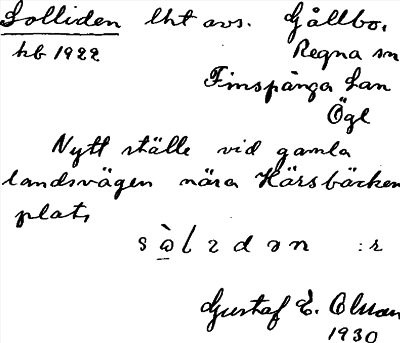 Solliden lht avs. Gållbo,
kb 1922 Regna sn
Finspånga län
Ögl
Nytt ställe vid gamla
landsvägen nära Kärsbäcken
plats
sὼlıdən :r
Gustaf E. Olsson
1930